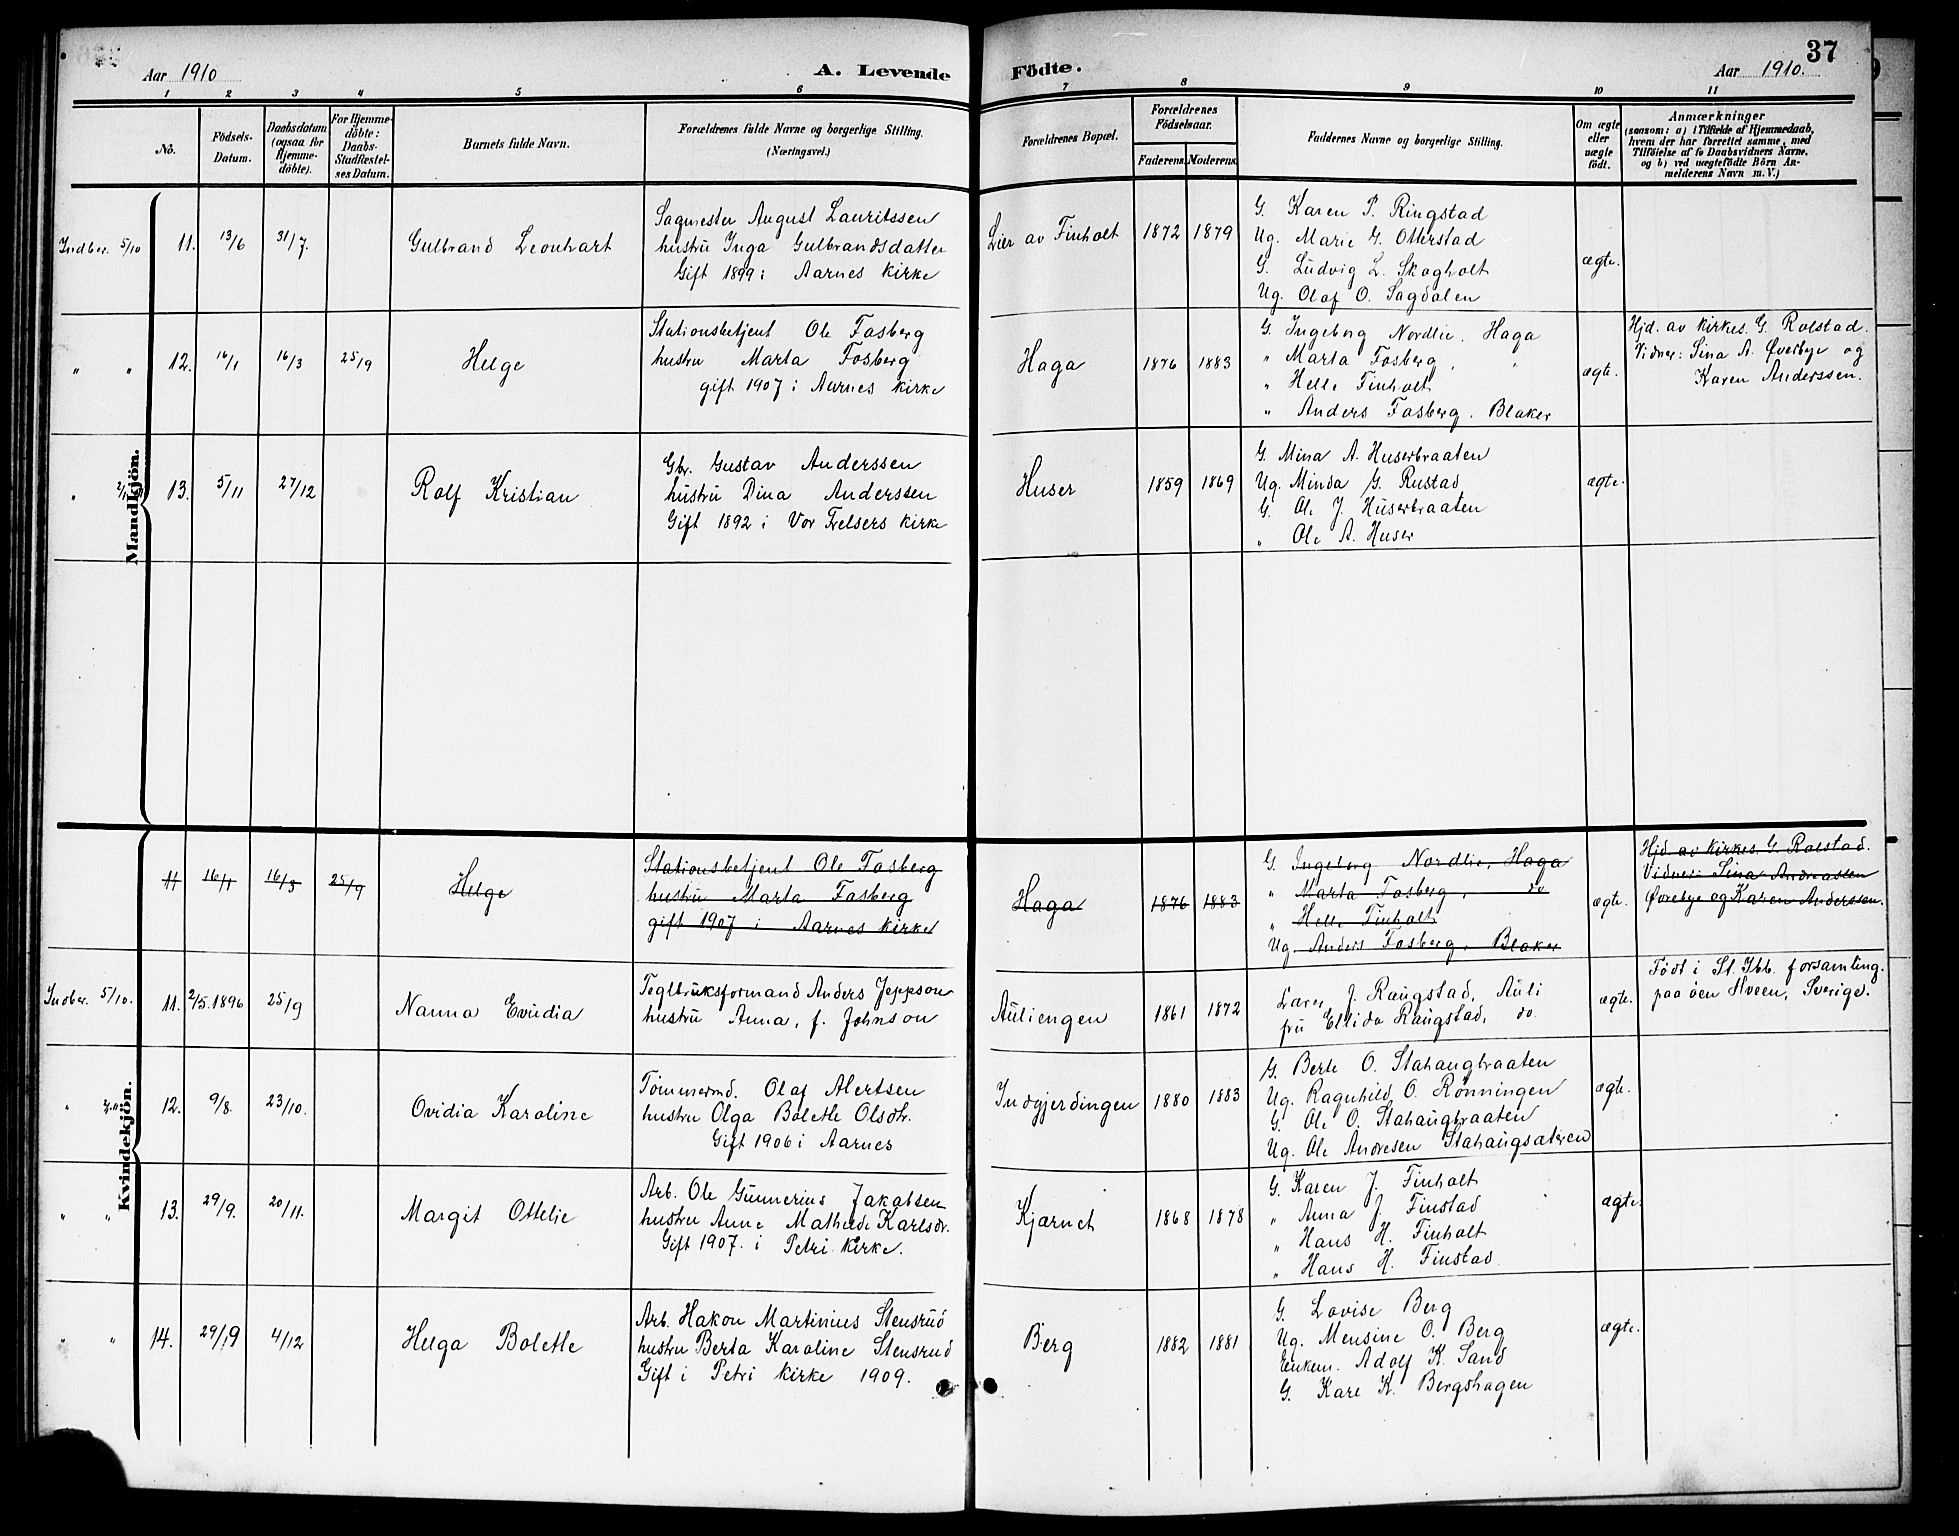 Aar 1910
A. Levende
Födte.
37
Aar 1910.
1 2 3 4 5 6 7 8 9 10 11
No.
Födsels-
Datum.
Daabsdatum
(ogsaa for
Hjemme-
döbte).
For Hjemme-
döbte:
Daabs-
Stadfæstel-
ses Datum.
Barnets fulde Navn.
Forældrenes fulde Navne og borgerlige Stilling.
(Næringsvei.)
Forældrenes Bopæl.
Forældrenes
Födselsaar.
Faderens.
Moderens.
Faddernes Navne og borgerlige Stilling.
Om ægte
eller
uægte
født.
Anmærkninger
(saasom: a) i Tilfælde af Hjemmedaab,
hvem der har forrettet samme, med
Tilföielse af to Daabsvidners Navne,
og b) ved uægtefödte Börn An-
melderens Navn m. V.)
Mandkjön.
Indber. 5/10
11.
13/6
31/7.
Gulbrand Leonhart
Sagmester August Lauritssen
hustru Inga Gulbrandsdatter
Gift 1899 i Aarnes kirke
Lier av Finholt
1872
1879
G. Karen P. Ringstad
Ug. Marie G. Otterstad
G. Ludvig L. Skogholt
Ug. Olaf O. Sagdalen
ægte.
" "
12.
16/1
16/3
25/9
Helge
Stationsbetjent Ole Fosberg
hustru Marta Fosberg
gift 1907 i Aarnes kirke
Haga
1876
1883
G. Ingeborg Nordlie. Haga
" Marta Fosberg, "
" Helle Finholt
" Anders Fosberg. Blaker
ægte.
Hjd. av kirkes. G. Rolstad.
Vidner: Sina A. Øverbye og
Karen Anderssen.
"
13.
5/11
27/12
Rolf Kristian
Gbr. Gustav Anderssen
hustru Dina Anderssen
Gift 1892 i Vor Frelsers kirke
Huser
1859
1869
G. Mina A. Huserbraaten
Ug. Minda G. Rustad
G. Ole J. Huserbraaten
" Ole A. Huser
ægte.
Kvindekjön.
11
16/1
16/3
25/9
Helge
Stationsbetjent Ole Fosberg
hustru Marta Fosberg
gift 1907 i Aarnes kirke
Haga
1876
1883
G. Ingeborg Nordlie, Haga
" Marta Fosberg, do
" Helle Finholt
Ug. Anders Fosberg, Blaker
ægte.
Hjd. av kirkes. G. Rolstad.
Vidner: Sina Andreassen
Øverbye og Karen Anderssen.
Indber. 5/10.
11.
2/5.1896
25/9
Nanna Evidia
Teglbruksformand Anders Jeppson
hustru Anna, f. Johnson
Auliengen
1861
1872
Lærer J. Raugstad, Auli
fru Ellida Raugstad, do.
ægte.
Født i St. Ibb. forsamling.
paa øen Hveen, Sverige.
"
12.
9/8.
23/10.
Ovidia Karoline
Tømmermd. Olaf Alertsen
hustru Olga Bolette Olsdtr.
Gift 1906 i Aarnes
Indgjerdingen
1880
1883
G. Berte O. Stahaugbraaten
Ug. Ragnhild O. Rønningen
G. Ole O. Stahaugbraaten
Ug. Ole Andresen Stahaugsæteren
ægte.
" "
13.
29/9.
20/11.
Margit Ottelie
Arb. Ole Gunnerius Jakobsen
hustru Anne Mathilde Karlsdr.
Gift 1907. i Petri kirke.
Kjærnet
1868
1878
G. Karen J. Finholt
" Anna J. Finstad
" Hans H. Finholt
" Hans H. Finstad
ægte.
" "
14.
29/9
4/12
Helga Bolette
Arb. Hakon Martinius Stensrud
hustru Berta Karoline Stensrud
Gift i Petri kirke 1909.
Berg
1882
1881
G. Lovise Berg
Ug. Mensine O. Berg
Enkem. Adolf K. Sand
G. Kare K. Bergshagen
ægte.